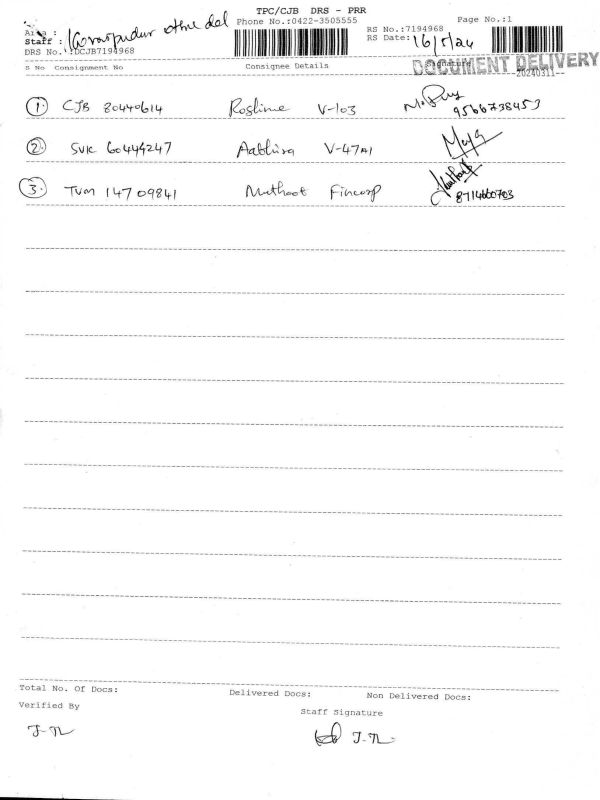 TPC/CJB DRS - PRR
Area :
Staff : Kovaipudur othre del
DRS No. :DCJB7194968
Phone No.:0422-3505555
RS No.:7194968
RS Date: 16/5/24
Page No.:1
DOCUMENT DELIVERY
S No Consignment No Consignee Details Signature
20240311--
1. CJB 80440614 Roshine V-103 9566738453
2. SVK 60444247 V-47A1 Maya
3. TVM 14709841 Muthoot Fincorp 8714600703
Total No. Of Docs: Delivered Docs: Non Delivered Docs:
Verified By Staff Signature